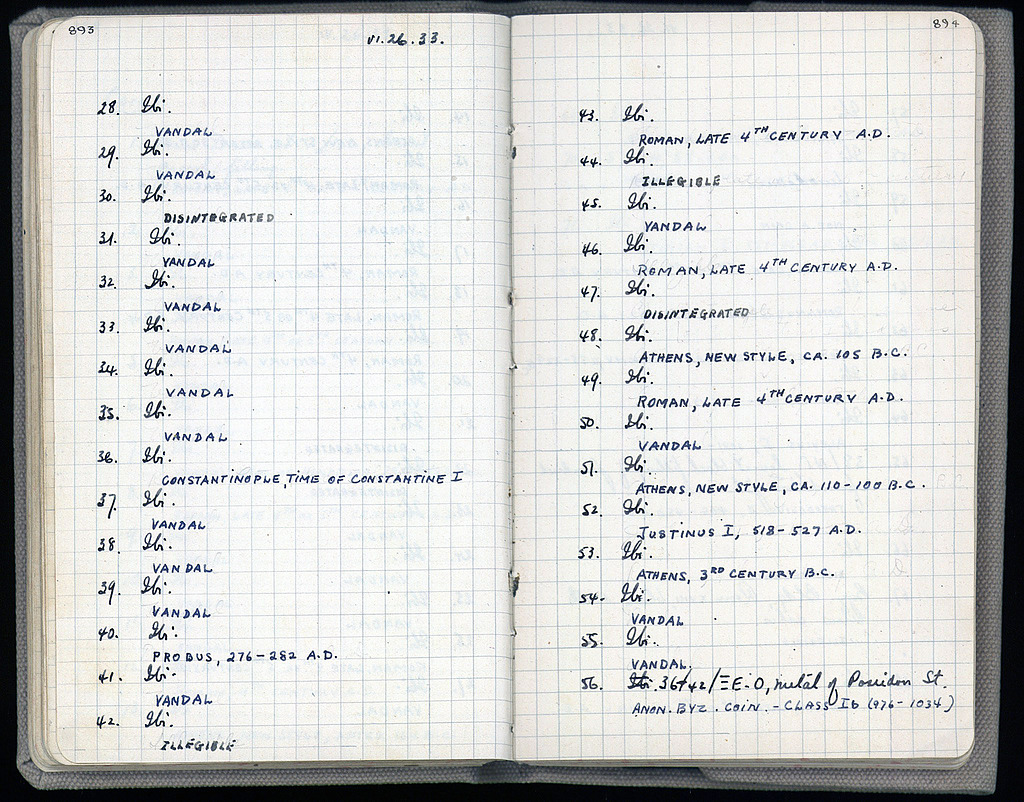 893
VI.26.33.
28. Ibi.
VANDAL
29. Ibi.
VANDAL
30. Ibi.
DISINTEGRATED
31. Ibi.
VANDAL
32. Ibi.
VANDAL
33. Ibi.
VANDAL
34. Ibi.
VANDAL
35. Ibi.
VANDAL
36. Ibi.
CONSTANTINOPLE, TIME OF CONSTANTINE I
37. Ibi.
VANDAL
38. Ibi.
VANDAL
39. Ibi.
VANDAL
40. Ibi.
PROBUS, 276-282 A.D.
41. Ibi.
VANDAL
42. Ibi.
ILLEGIBLE
894
43. Ibi.
ROMAN, LATE 4TH CENTURY A.D.
44. Ibi.
ILLEGIBLE
45. Ibi.
VANDAL
46. Ibi.
ROMAN, LATE 4TH CENTURY A.D.
47. Ibi.
DISINTEGRATED
48. Ibi.
ATHENS, NEW STYLE, CA. 105 B.C.
49. Ibi.
ROMAN, LATE 4TH CENTURY A.D.
50. Ibi.
VANDAL
51. Ibi.
ATHENS, NEW STYLE, CA. 110-100 B.C.
52. Ibi.
JUSTINUS I, 518-527 A.D.
53. Ibi.
ATHENS, 3RD CENTURY B.C.
54. Ibi.
VANDAL
55. Ibi.
VANDAL.
56. Ibi. 36/42/ΞE-O, metal of Poseidon St.
ANON. BYZ. COIN. - CLASS Ib (976-1034)